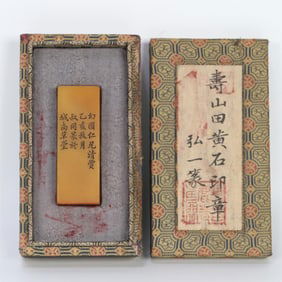 壽山田黃石印章
弘一篆
幻園仁兄清賞
乙亥秋月
叔同篆於
城南草堂